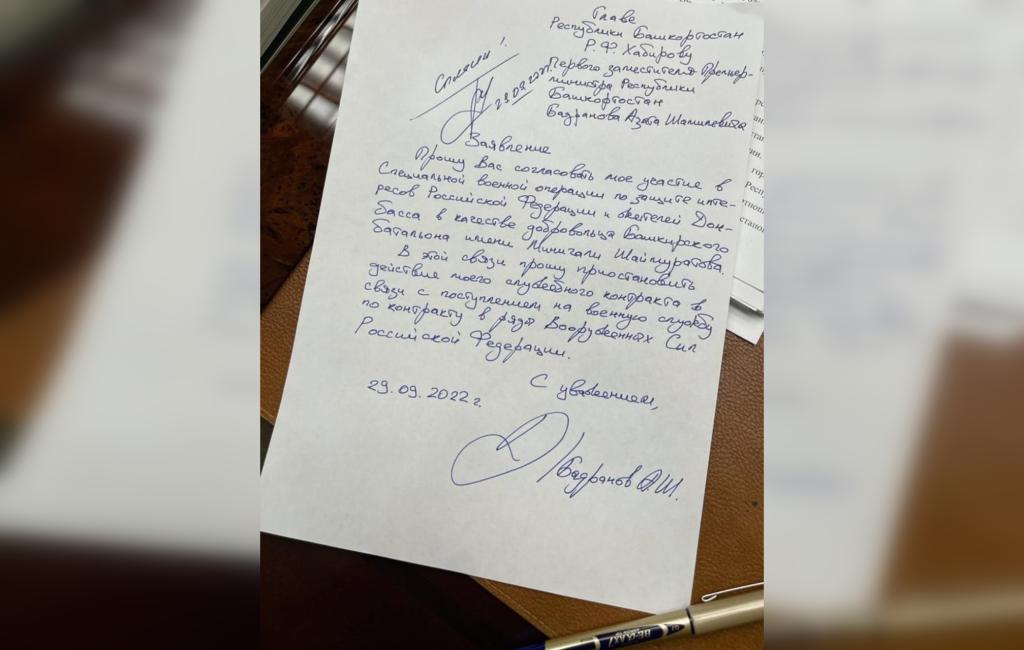 Главе
Республики Башкортостан
Р.Ф. Хабирову
Первого заместителя Премьер-
министра Республики
Башкортостан
Бадранова Азата Шамилевича
Согласен!
29.09.2022г.
Заявление
Прошу Вас согласовать мое участие в
Специальной военной операции по защите инте-
ресов Российской Федерации и жителей Дон-
басса в качестве добровольца Башкирского
батальона имени Минигали Шаймуратова.
В этой связи прошу приостановить
действие моего служебного контракта в
связи с поступлением на военную службу
по контракту в ряды Вооруженных Сил
Российской Федерации.
С уважением,
29.09.2022г.
Бадранов А.Ш.